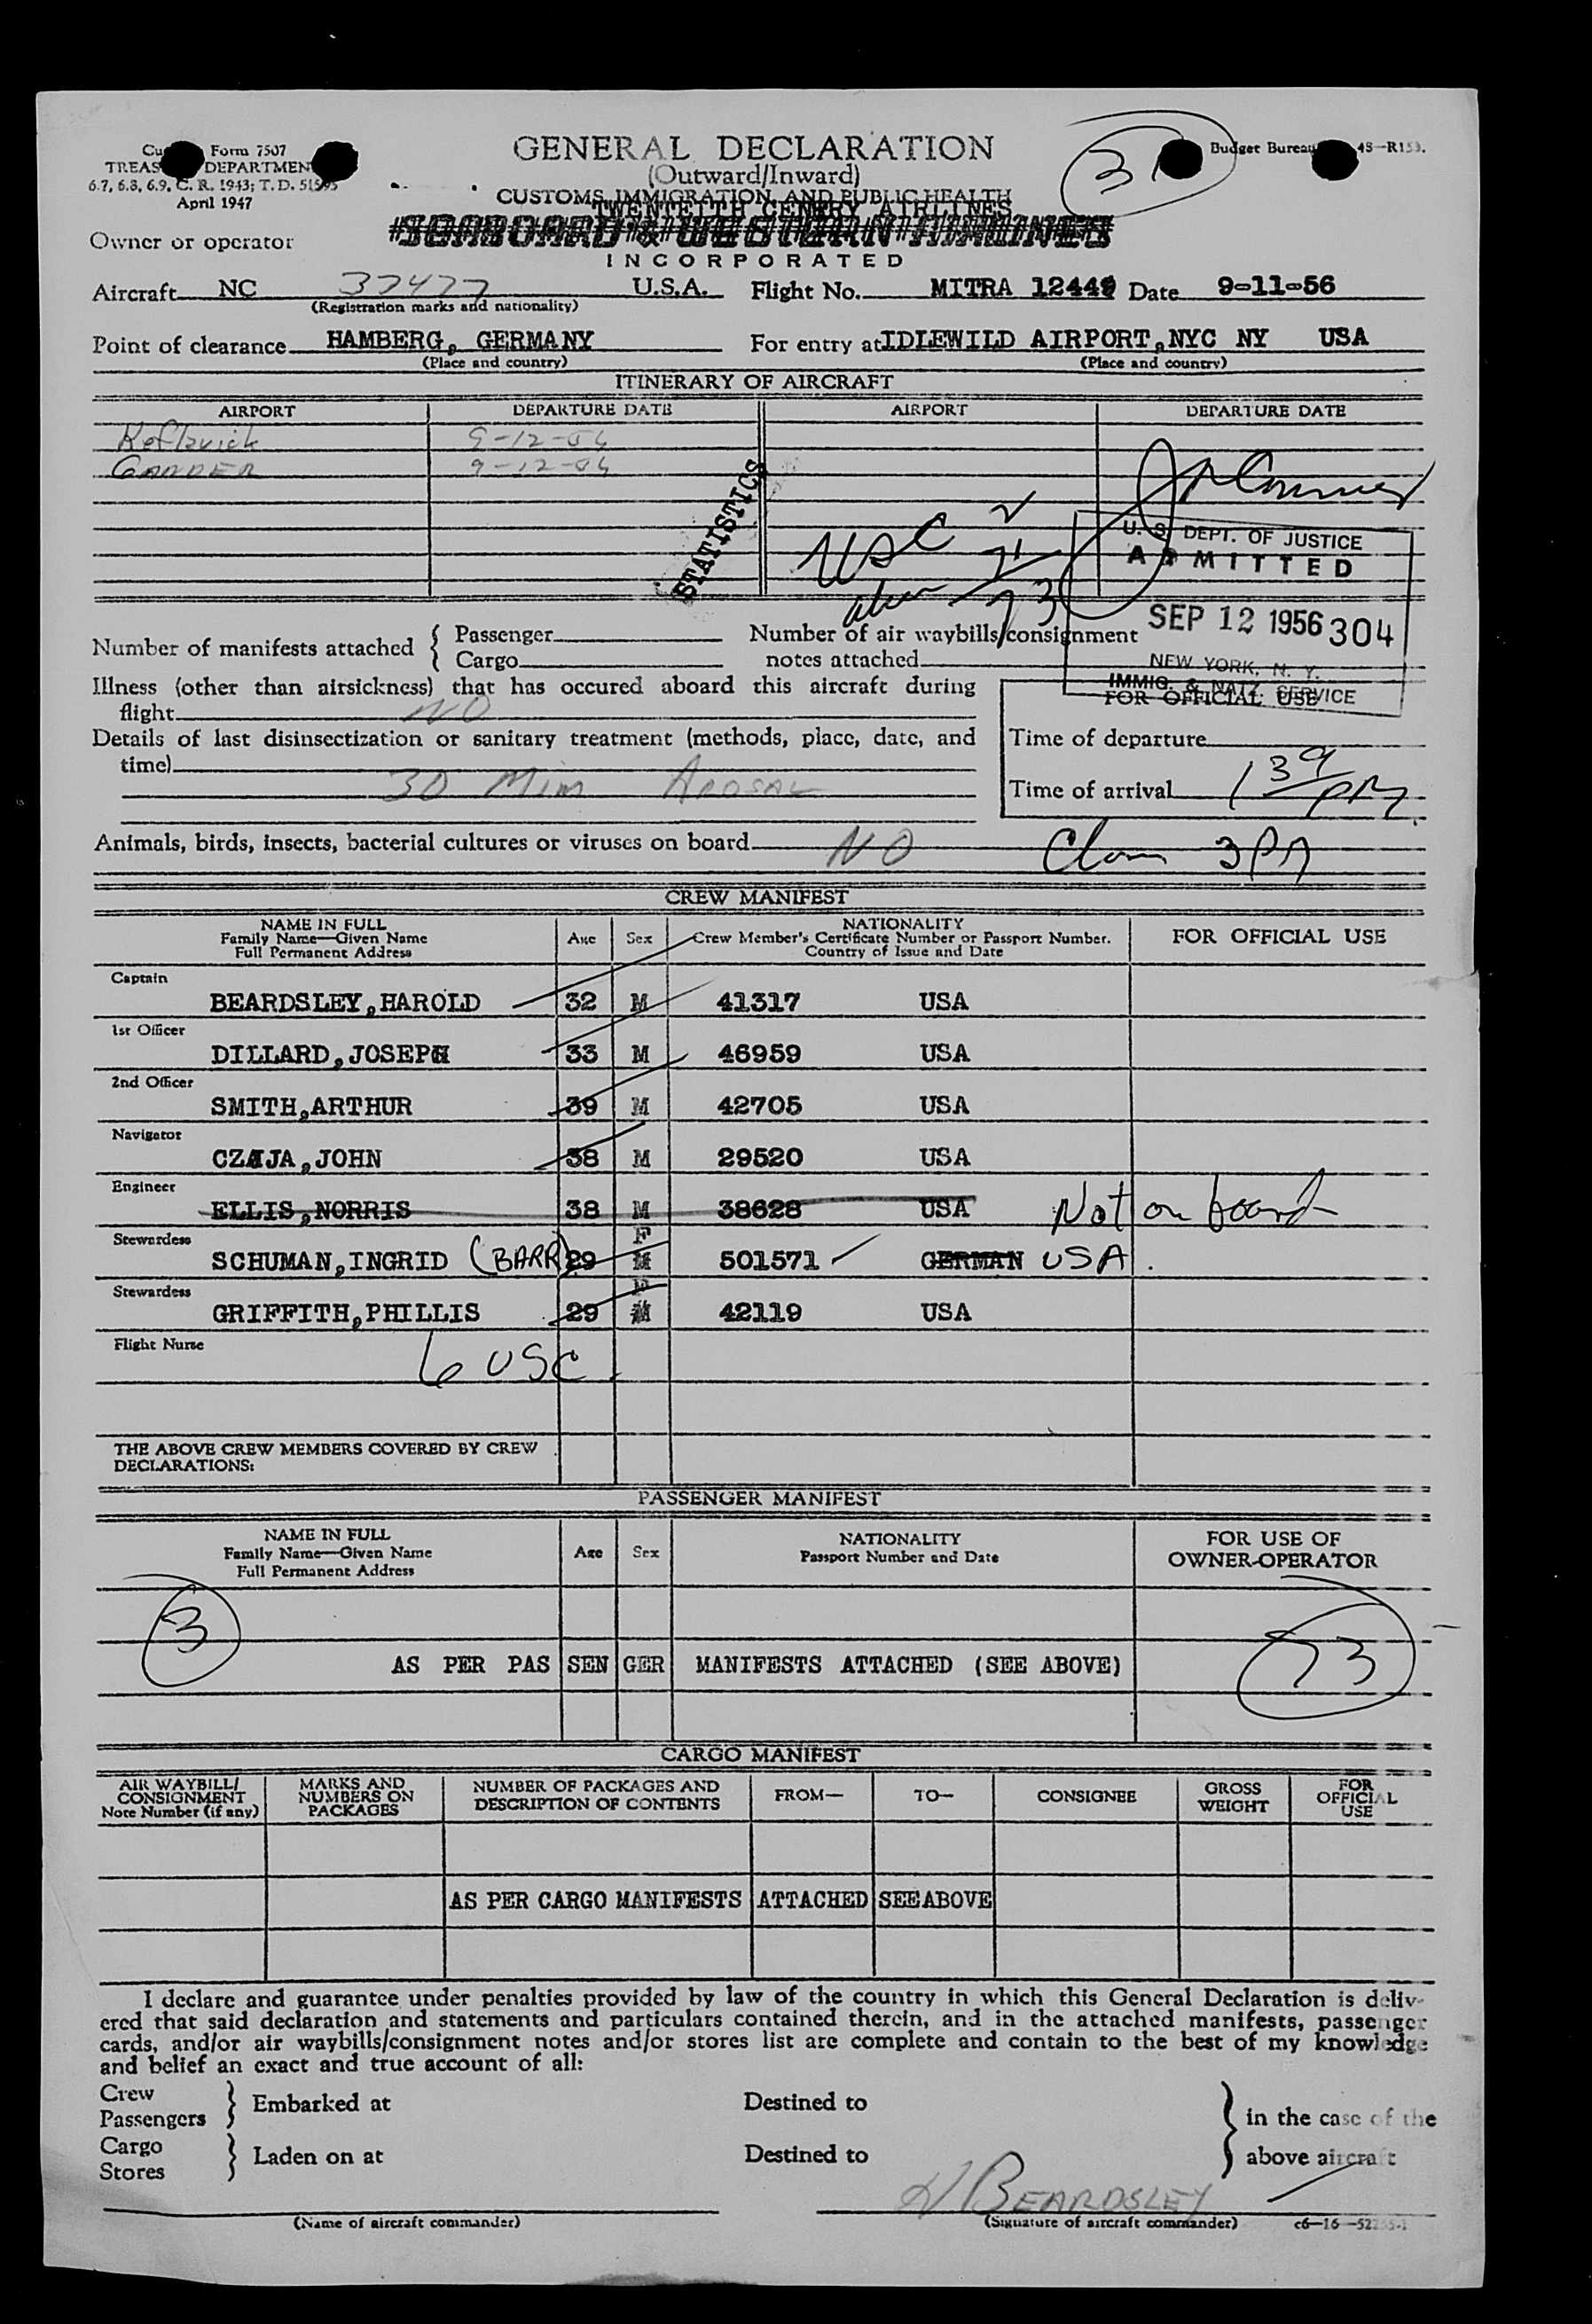 Form 7507
TREAS DEPARTMEN
6.7, 6.8, 6.9, C. R. 1943; T. D. 51595
April 1947
GENERAL DECLARATION
(Outward/Inward)
CUSTOMS, IMMIGRATION, AND PUBLIC HEALTH
31
Budget Bureau 48-R153.
TWENTEITH CENTRY AIRLINES
SEABOARD & WESTERN AIRLINES
INCORPORATED
Owner or operator
Aircraft NC 37477 U.S.A. Flight No. MITRA 12449 Date 9-11-56
(Registration marks and nationality)
Point of clearance HAMBERG, GERMANY For entry at IDLEWILD AIRPORT, NYC NY USA
(Place and country) (Place and country)
ITINERARY OF AIRCRAFT
AIRPORT DEPARTURE DATE AIRPORT DEPARTURE DATE
Keflavick 9-12-56
GANDER 9-12-56
STATISTICS
USC 2
alien 71
73
U. S. DEPT. OF JUSTICE
ADMITTED
SEP 12 1956 304
NEW YORK, N. Y.
IMMIG. & NATZ. SERVICE
Number of manifests attached { Passenger
Cargo
Number of air waybills/consignment
notes attached
Illness (other than airsickness) that has occured aboard this aircraft during
flight NO
Details of last disinsectization or sanitary treatment (methods, place, date, and
time)
30 Min AROSAL
FOR OFFICIAL USE
Time of departure
Time of arrival 1 39 PM
Animals, birds, insects, bacterial cultures or viruses on board NO
3 PM
CREW MANIFEST
NAME IN FULL
Family Name—Given Name
Full Permanent Address
Age Sex
NATIONALITY
Crew Member's Certificate Number or Passport Number.
Country of Issue and Date
FOR OFFICIAL USE
Captain
BEARDSLEY, HAROLD 32 M 41317 USA
1st Officer
DILLARD, JOSEPH 33 M 46959 USA
2nd Officer
SMITH, ARTHUR 39 M 42705 USA
Navigator
CZAJA, JOHN 38 M 29520 USA
Engineer
ELLIS, NORRIS 38 M 38628 USA Not on board
Stewardess
SCHUMAN, INGRID (BARR) 29 F M 501571 GERMAN USA.
Stewardess
GRIFFITH, PHILLIS 29 F M 42119 USA
Flight Nurse
6 USC
THE ABOVE CREW MEMBERS COVERED BY CREW
DECLARATIONS:
PASSENGER MANIFEST
NAME IN FULL
Family Name—Given Name
Full Permanent Address
Age Sex
NATIONALITY
Passport Number and Date
FOR USE OF
OWNER-OPERATOR
3
73
AS PER PAS SEN GER MANIFESTS ATTACHED (SEE ABOVE)
CARGO MANIFEST
AIR WAYBILL/
CONSIGNMENT
Note Number (if any)
MARKS AND
NUMBERS ON
PACKAGES
NUMBER OF PACKAGES AND
DESCRIPTION OF CONTENTS
FROM—
TO—
CONSIGNEE
GROSS
WEIGHT
FOR
OFFICIAL
USE
AS PER CARGO MANIFESTS ATTACHED SEE ABOVE
I declare and guarantee under penalties provided by law of the country in which this General Declaration is deliv-
ered that said declaration and statements and particulars contained therein, and in the attached manifests, passenger
cards, and/or air waybills/consignment notes and/or stores list are complete and contain to the best of my knowledge
and belief an exact and true account of all:
Crew
Passengers } Embarked at Destined to
Cargo
Stores } Laden on at Destined to
} in the case of the
above aircraft
H BEARDSLEY
(Name of aircraft commander) (Signature of aircraft commander) c6-16